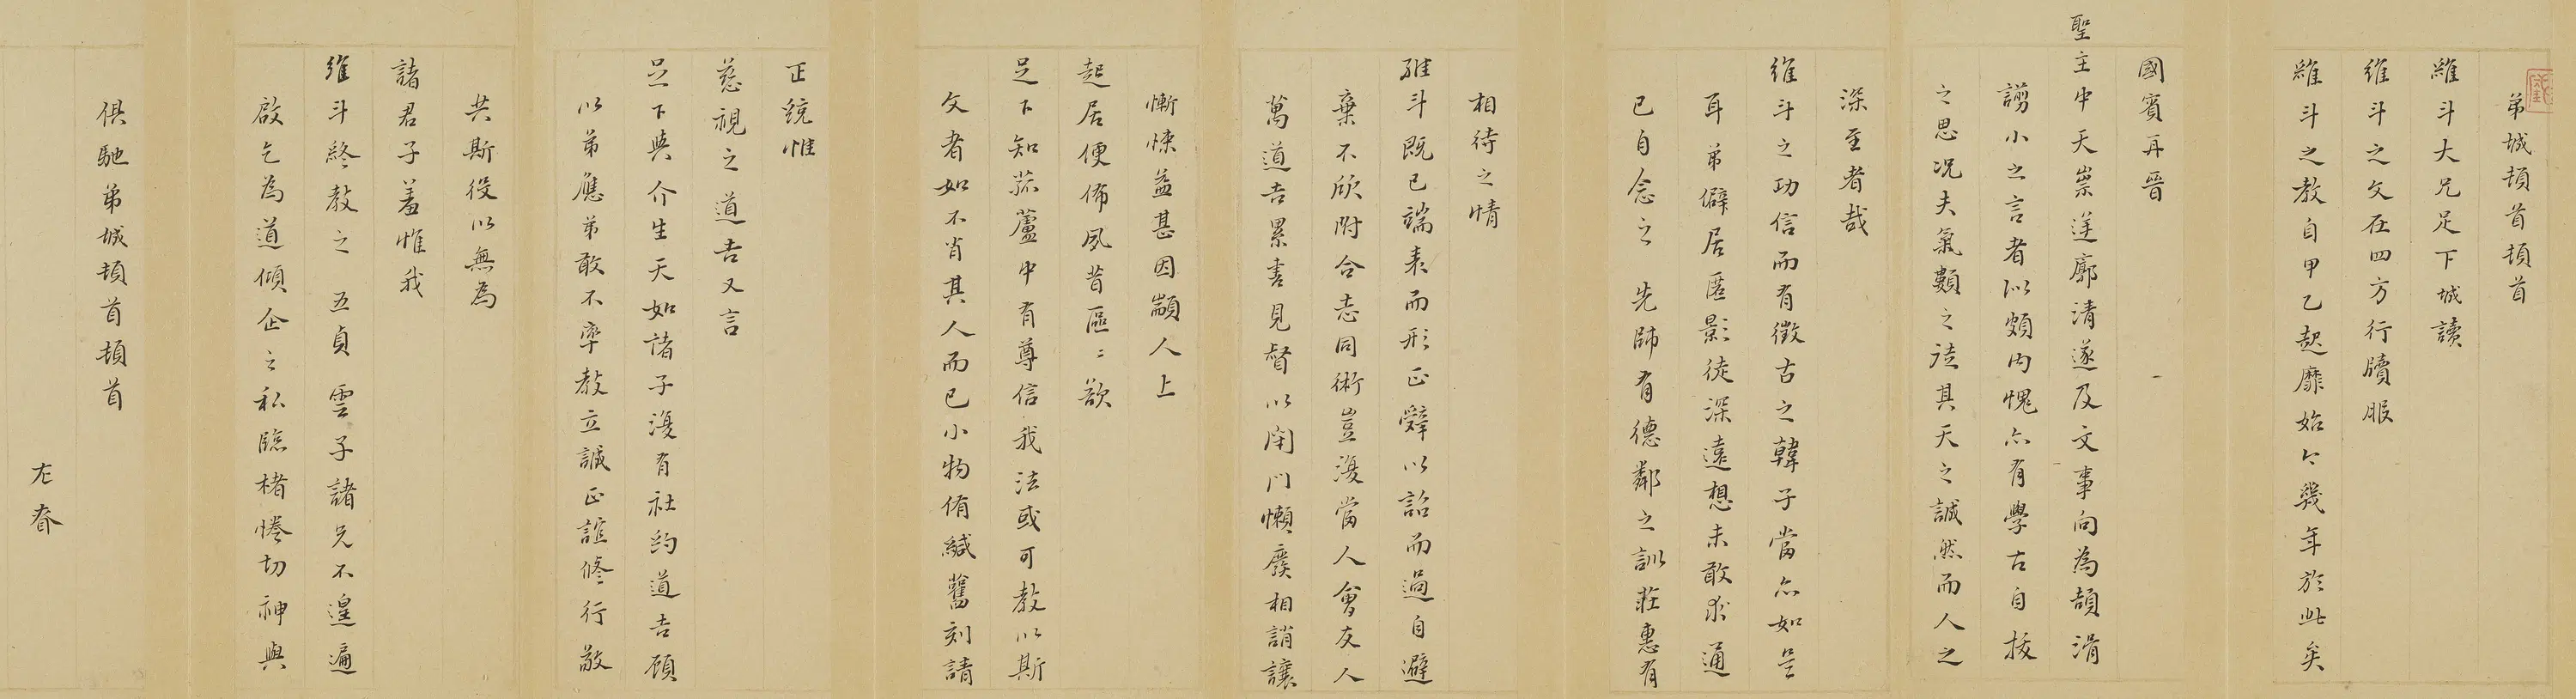 弟城頓首頓首
維斗大兄足下城讀
維斗之文在四方行牘服
維斗之教自甲乙起靡始今幾年於此矣
國賓再晉
聖主中天崇送廓清遂及文事向為頡滑
謭小之言者以頗內愧亦有學古自拔
之思況夫氣類之誌其天之誠然而人之
深至者哉
維斗之功信而有徵古之韓子當亦如是
耳弟僻居匿影徒深遠想未敢求通
已自念之先師有德鄰之訓莊惠有
相待之情
維斗既已端表而形正辭以詔而過自避
棄不欣附合志同術豈復當人會友人
萬道吉累書見督以閉門懶廢相誚讓
慚悚益甚因顓人上
起居便佈夙昔區〻欲
足下知菰蘆中有尊信我法或可教以斯
文者如不肖其人而已小物侑緘舊刻請
正統惟
慈視之道吉又言
足下與介生天如諸子復有社約道吉顧
以弟應弟敢不率教立誠正誼修行敬
共斯役以無為
諸君子羞惟我
維斗終教之五貞雲子諸兄不遑遍
啟乞為道傾企之私臨楮惓切神與
俱馳弟城頓首頓首
左眘